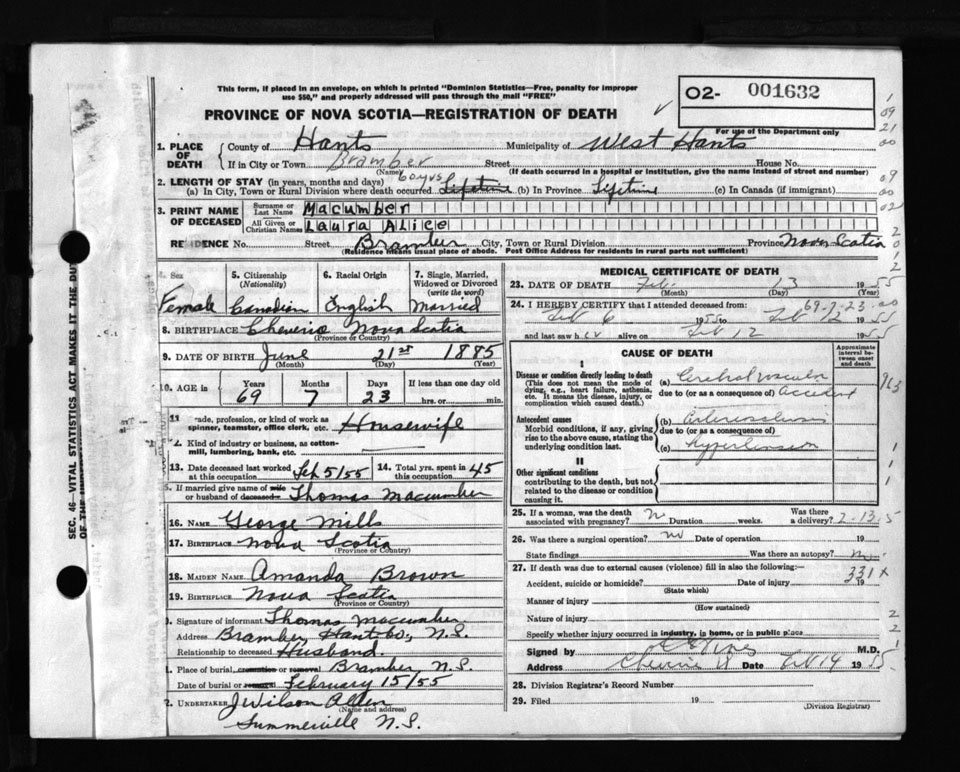 This form, if placed in an envelope, on which is printed "Dominion Statistics—Free, penalty for improper
use $50," and properly addressed will pass through the mail "FREE"
PROVINCE OF NOVA SCOTIA—REGISTRATION OF DEATH
O2- 001632
For use of the Department only
1. PLACE OF DEATH County of Hants Municipality of West Hants
If in City or Town Bramber Street House No.
(Name) (If death occurred in a hospital or institution, give the name instead of street and number)
2. LENGTH OF STAY (in years, months and days) 60 yrs
(a) In City, Town or Rural Division where death occurred Lifetime (b) In Province Lifetime (c) In Canada (if immigrant)
3. PRINT NAME OF DECEASED Surname or Last Name Macumber
All Given or Christian Names Laura Alice
RESIDENCE No. Street Bramber City, Town or Rural Division Province Nova Scotia
(Residence means usual place of abode. Post Office Address for residents in rural parts not sufficient)
4. Sex Female
5. Citizenship (Nationality) Canadian
6. Racial Origin English
7. Single, Married, Widowed or Divorced (write the word) Married
8. BIRTHPLACE Cheverie Nova Scotia
(Province or Country)
9. DATE OF BIRTH June 21st 1885
(Month) (Day) (Year)
10. AGE in Years Months Days If less than one day old
69 7 23 hrs. or min.
11 rade, profession, or kind of work as spinner, teamster, office clerk, etc. Housewife
2. Kind of industry or business, as cotton-mill, lumbering, bank, etc.
13. Date deceased last worked at this occupation Feb 5/55 14. Total yrs. spent in this occupation 45
5. If married give name of wife or husband of deceased Thomas Macumber
16. NAME George Mills
17. BIRTHPLACE Nova Scotia
(Province or Country)
18. MAIDEN NAME Amanda Brown
19. BIRTHPLACE Nova Scotia
(Province or Country)
Signature of informant Thomas Macumber
Address Bramber, Hants Co, N.S.
Relationship to deceased Husband.
Place of burial, cremation or removal Bramber N.S.
Date of burial or removal February 15/55
2. UNDERTAKER J Wilson Allen
(Name and address)
Summerville N.S.
MEDICAL CERTIFICATE OF DEATH
23. DATE OF DEATH Feb 13 1955
(Month) (Day) (Year)
24. I HEREBY CERTIFY that I attended deceased from: 69-7-23
Feb 6 1955 to Feb 12 1955
and last saw h er alive on Feb 12 1955
CAUSE OF DEATH
Approximate interval between onset and death
I
Disease or condition directly leading to death
(This does not mean the mode of dying, e.g., heart failure, asthenia, etc. It means the disease, injury, or complication which caused death.)
(a) Cerebral vascular
due to (or as a consequence of) accident
Antecedent causes
Morbid conditions, if any, giving rise to the above cause, stating the underlying condition last.
(b) Arteriosclerosis
due to (or as a consequence of)
(c) Hypertension
II
Other significant conditions
contributing to the death, but not related to the disease or condition causing it.
25. If a woman, was the death associated with pregnancy? N Duration weeks. Was there a delivery? 2-13-5
26. Was there a surgical operation? no Date of operation 19
State findings Was there an autopsy? no
27. If death was due to external causes (violence) fill in also the following:—
331x
Accident, suicide or homicide? Date of injury 19
(State which)
Manner of injury
(How sustained)
Nature of injury
Specify whether injury occurred in industry, in home, or in public place
Signed by M.D.
Address Cheverie Date Feb 14 1955
28. Division Registrar's Record Number
29. Filed 19
(Division Registrar)
SEC. 46—VITAL STATISTICS ACT MAKES IT THE DU